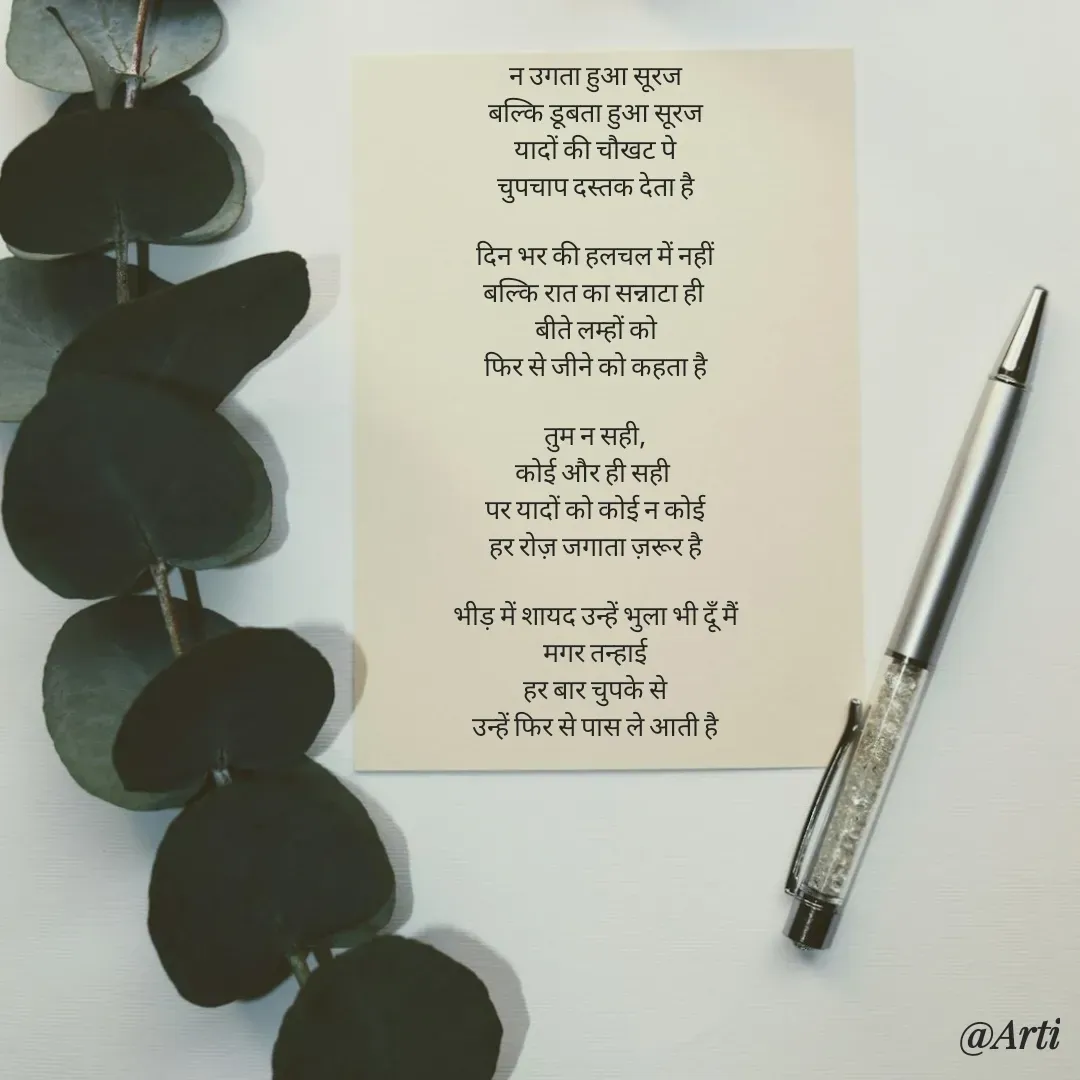 न उगता हुआ सूरज
बल्कि डूबता हुआ सूरज
यादों की चौखट पे
चुपचाप दस्तक देता है
दिन भर की हलचल में नहीं
बल्कि रात का सन्नाटा ही
बीते लम्हों को
फिर से जीने को कहता है
तुम न सही,
कोई और ही सही
पर यादों को कोई न कोई
हर रोज़ जगाता ज़रूर है
भीड़ में शायद उन्हें भुला भी दूँ मैं
मगर तन्हाई
हर बार चुपके से
उन्हें फिर से पास ले आती है
@Arti